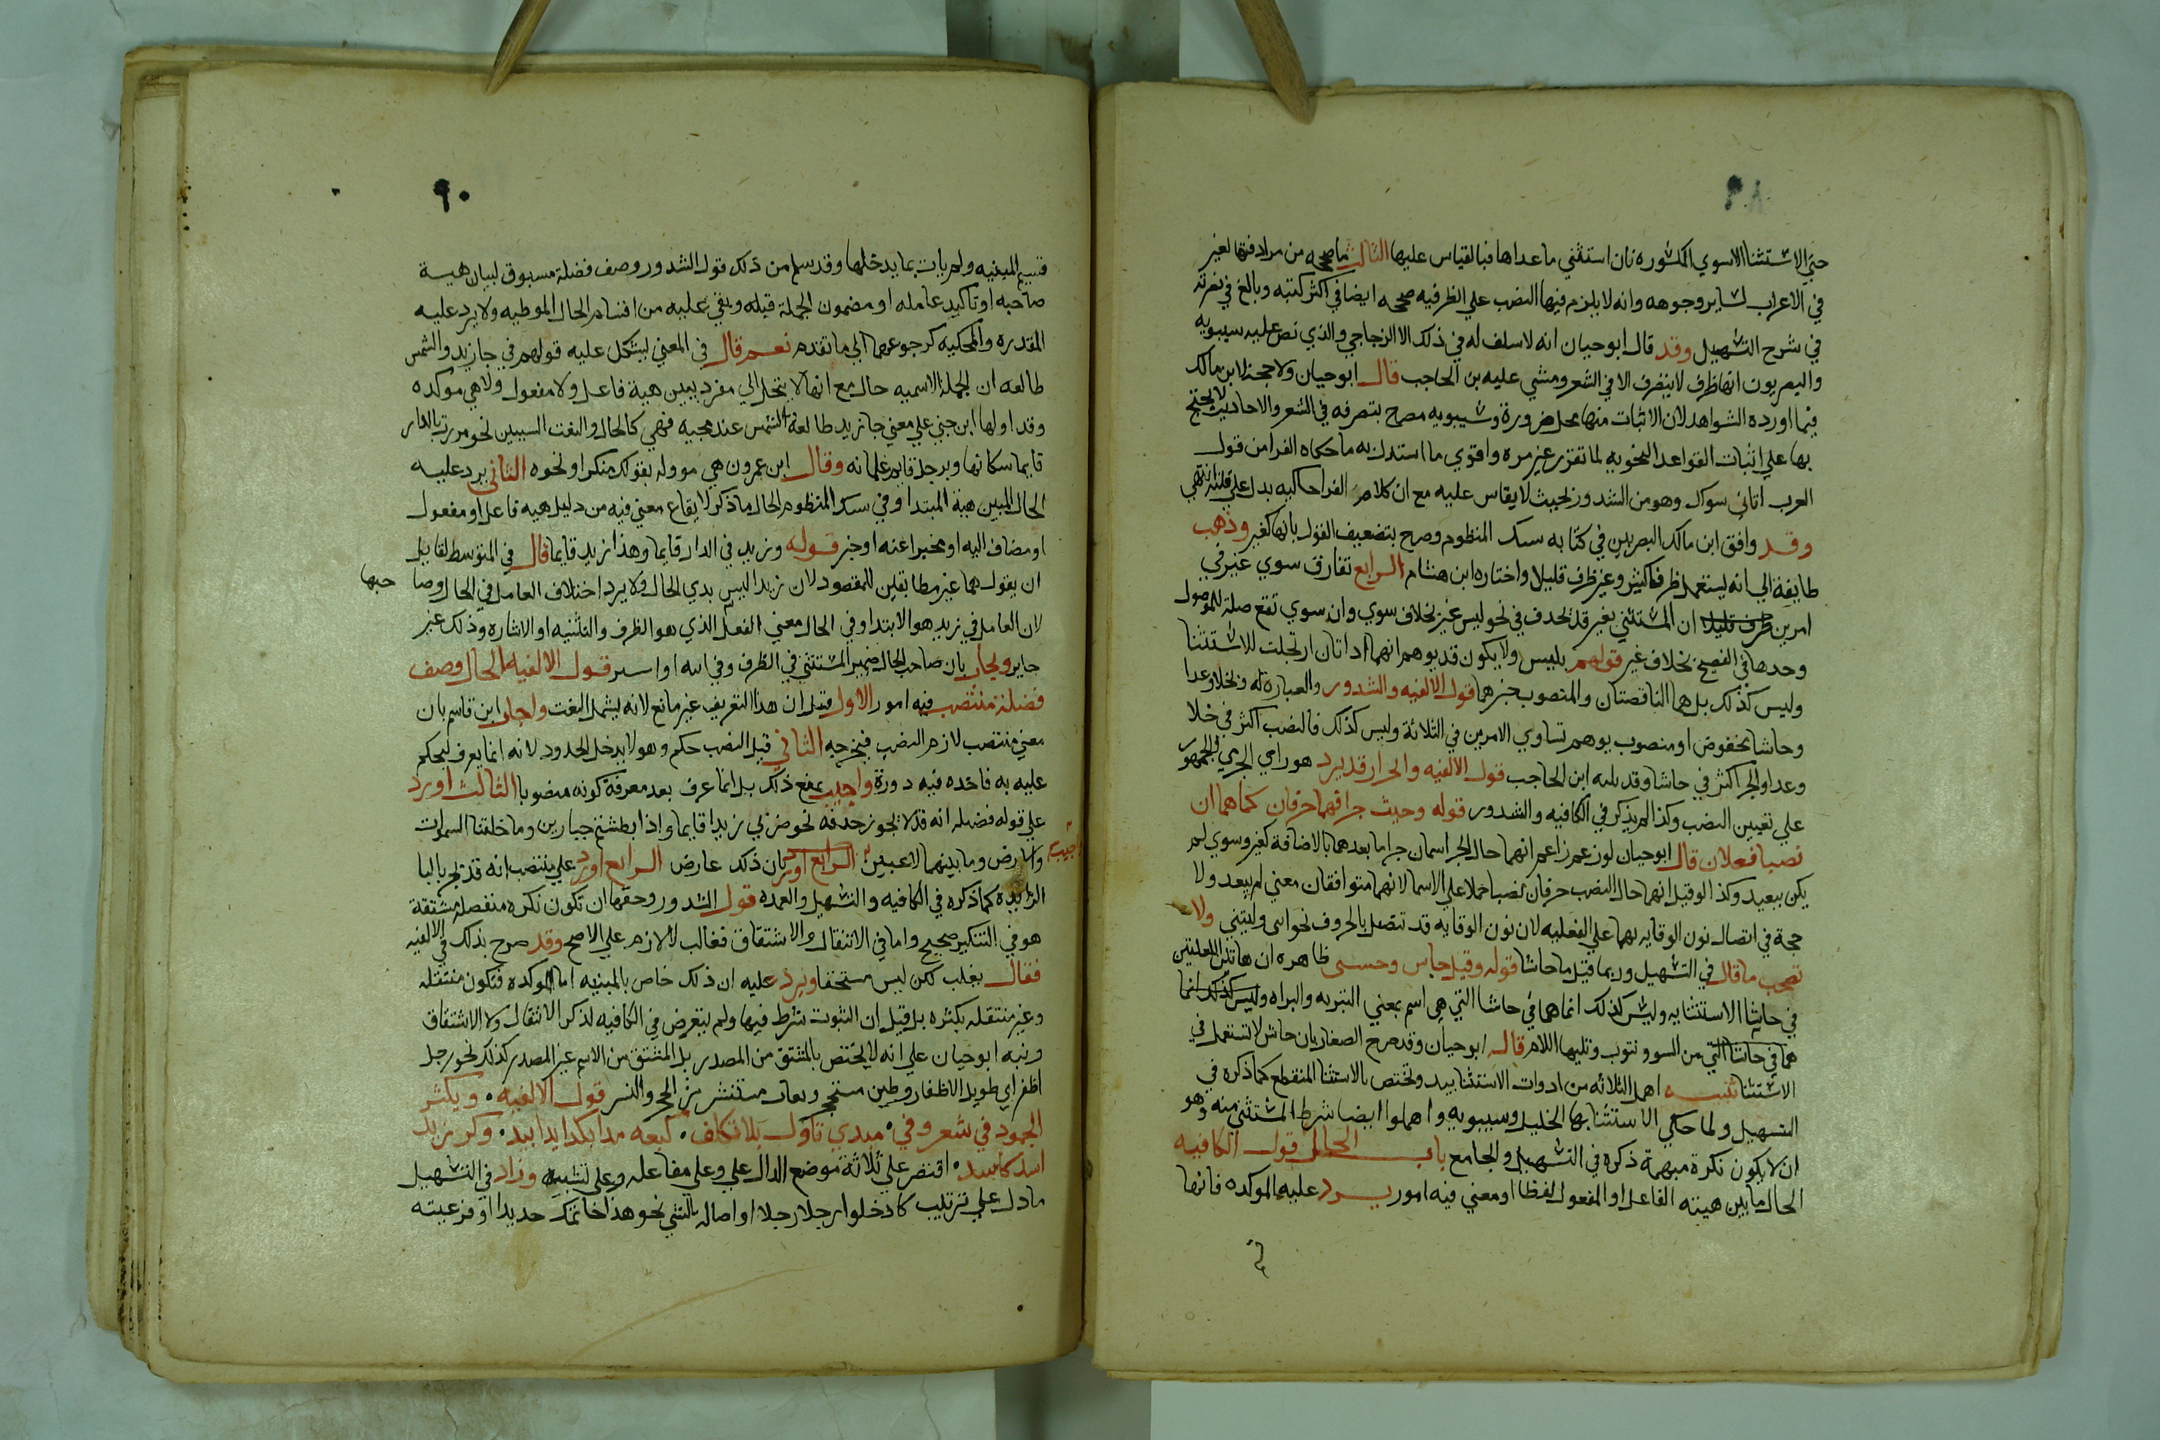 ٨٩
حتي الاستثنا الاسوي المكسوره نان استثني ماعداها فبالقياس عليها الثالث ماصححه من مرادفتها لغير
في الاعراب لساير وجوهه وانه لا يلزم فيها النصب علي الظرفيه صححه ايضا في اكثر كتبه وبالغ في نصرته
في شرح التسهيل وقد قال ابوحيان انه لاسلف له في ذلك الا الزجاجي والذي نص عليه سيبويه
والبصريون انها ظرف لا يتصرف الا في الشعر ومشي عليه بن الحاجب قال ابوحيان ولا حجة لابن مالك
فيما اورده الشواهد لان الاثبات منها محل ضرورة وسيبويه مصرح بتصرفه في الشعر والاحاديث لا يحتج
بها علي اثبات القواعد النحويه لما تقرر غير مره واقوي ما استدل به ما حكاه الفرا من قول
العرب اتاني سواك وهو من الشذوذ بحيث لا يقاس عليه مع ان كلام الفرا حاكيه يدل علي قلته انتهي
وقد وافق ابن مالك البصريين في كتابه سبك المنظوم وصرح بتضعيف القول بانها كغير وذهب
طايفة الي انه يستعمل ظرفا كثيرا وغير ظرف قليلا واختاره ابن هشام الرابع تفارق سوي غير في
امرين ان المستثني بغير قد يحذف في نحو ليس غير بخلاف سوي وان سوي تقع صلة للموصول
وحدها في الفصيح بخلاف غير قولهم بليس ولا يكون قد يوهم انهما اداتان ارتجلت للاستثنا
وليس كذلك بل هما الناقصتان والمنصوب خبرهما قول الالفيه والشذور والعبارة له وبخلا وعدا
وحاشا مخفوض او منصوب يوهم تساوي الامرين في الثلاثة وليس كذلك فالنصب اكثر في خلا
وعدا والجر اكثر في حاشا وقد بينه ابن الحاجب قول الالفيه وانجرار قد يرد هو راي الجرمي والجمهور
علي تعيين النصب ولذا لم يذكر في الكافيه والشذور قوله وحيث جرا فهما حرفان كما هما ان
نصبا فعلان قال ابوحيان لوزعم زاعم انهما حال الجر اسمان جرا ما بعدهما بالاضافة كغير وسوي لم
يكن ببعيد وكذا لو قيل انهما حال النصب حرفان نصبا حملا علي الا سما لانهما متوافقان معني لم يبعد ولا
حجة في اتصال نون الوقايه بهما علي الفعليه لان نون الوقايه قد تتصل بالحروف نحو انني وليتني ولا
تصحب ما قال في التسهيل وربما قيل ما حاشا قوله وقيل حاش وحشي ظاهره ان هاتين اللغتين
في حاشا الاستثنايه وليس كذلك انما هما في حاشا التي هي اسم بمعني التنزيه والبراه وليس كذلك انما
هما في حاشا التي من السوو نتوب وتليها اللام قال ابوحيان وقد صرح الصفار بان حاش لا تستعمل في
الاستثنا تنبيه اهمل الثلاثه من ادوات الاستثنا بيد وتختص بالاستثنا المنقطع كما ذكره في
التسهيل ولما حاكي الاستثنا بها الخليل وسيبويه واهملوا ايضا شرط المستثني منه وهو
ان لا يكون نكرة مبهمة ذكره في التسهيل والجامع باب الحال قول الكافيه
الحال ما يبين هيئه الفاعل او المفعول لفظا او معني فيه امور يرد عليه الموكده فانها
٩٠
قسيم المبنيه ولم يات بما يدخلها وقد سلم من ذلك قول الشذور وصف فضلة مسبوق لبيان هيية
صاحبه او تاكيد عامله او مضمون الجملة قبله وبقي عليه من اقسام الحال الموطيه ولا يرد عليه
المقدره والمحكيه لرجوعهما الي ما تقدم نعم قال في المغني ليشكل عليه قولهم في جا زيد والشمس
طالعه ان الجملة الاسميه حال مع انها لا ينحل الي مفرد يبين هية فاعل ولا مفعول ولا هي موكده
وقد اولها ابن جني علي معني جا زيد طالعة الشمس عند مجيه فهي كالحال والنعت السببين نحو مررت بالدار
قايما سكانها وبرجل قايم غلمانه وقال ابن عمرون هي مووله بقولك منكرا ونحوه الثاني يرد عليه
الحال المبين هية المبتدا وفي سبك المنظوم الحال ما ذكر لايقاع معني فيه من دليل هيه فاعل او مفعول
او مضاف اليه او مخبرا عنه او خبر قوله وزيد في الدار قايما وهذا زيد قايما قال في المتوسط لقايل
ان يقول هما غير مطابقين للمقصود لان زيدا ليس بذي الحال ولا يرد اختلاف العامل في الحال وصا حبها
لان العامل في زيد هو الابتدا وفي الحال معني الفعل الذي هو الظرف والتنبيه او الاشاره وذلك غير
جايز ويجاب بان صاحب الحال ضمير المستتر في الظرف وفي انبه او اسير قول الالفيه الحال وصف
فضلة منتصب فيه امور الاول قيل ان هذا التعريف غير مانع لانه يشمل النعت واجاب ابن قاسم بان
معني منتصب لازم النصب فيخرجه الثاني قيل النصب حكم وهو لا يدخل الحدود لانه انما يعرف ليحكم
عليه به فاخذه فيه دورة واجيب بمنع ذلك بل انما عرف بعد معرفة كونه منصوبا الثالث اورد
علي قوله فضله انه قد لا يجوز حذفه نحو ضربي زيدا قايما واذا بطشتم جبارين وما خلقنا السموات
والارض وما بينهما لاعبين الرابع اورد بان ذلك عارض الرابع اورد علي منتصب انه قد يجر بالبا
اجيب
الزايدة كما ذكره في الكافيه والتسهيل والعمده قول الشذور وحقها ان تكون نكره منفصله مشتقة
هو في التنكير صحيح واما في الانتقال والاشتقاق فغالب لا لازم علي الاصح وقد صرح بذلك في الالفيه
فقال يغلب لكن ليس مستحقا ويرد عليه ان ذلك خاص بالمبينه اما الموكده فتكون منتقله
وغير منتقله بكثره بل قيل ان الثبوت شرط فيها ولم يتعرض في الكافيه لذكر الانتقال ولا الاشتقاق
ونبه ابوحيان علي انه لا يختص بالمشتق من المصدر بل المشتق من الاسم غير المصدر كذلك نحو رجل
اظفر اي طويل الاظفار وطين مستحجر وبغاث مستنسر من الحجر والنسر قول الالفيه ويكثر
الجمود في سعر وفي مبدي تاول بلا تكلف كبعه مدا بكذا يدا بيد وكر زيد
اسدا كاسد اقتصر علي ثلاثة موضع الدال علي وعلي مفاعله وعلي تشبيه وزاد في التسهيل
ما دل علي ترتيب كادخلوا رجلا رجلا او اصاله بالشي نحو هذا خاتمك حديدا او فرعيته